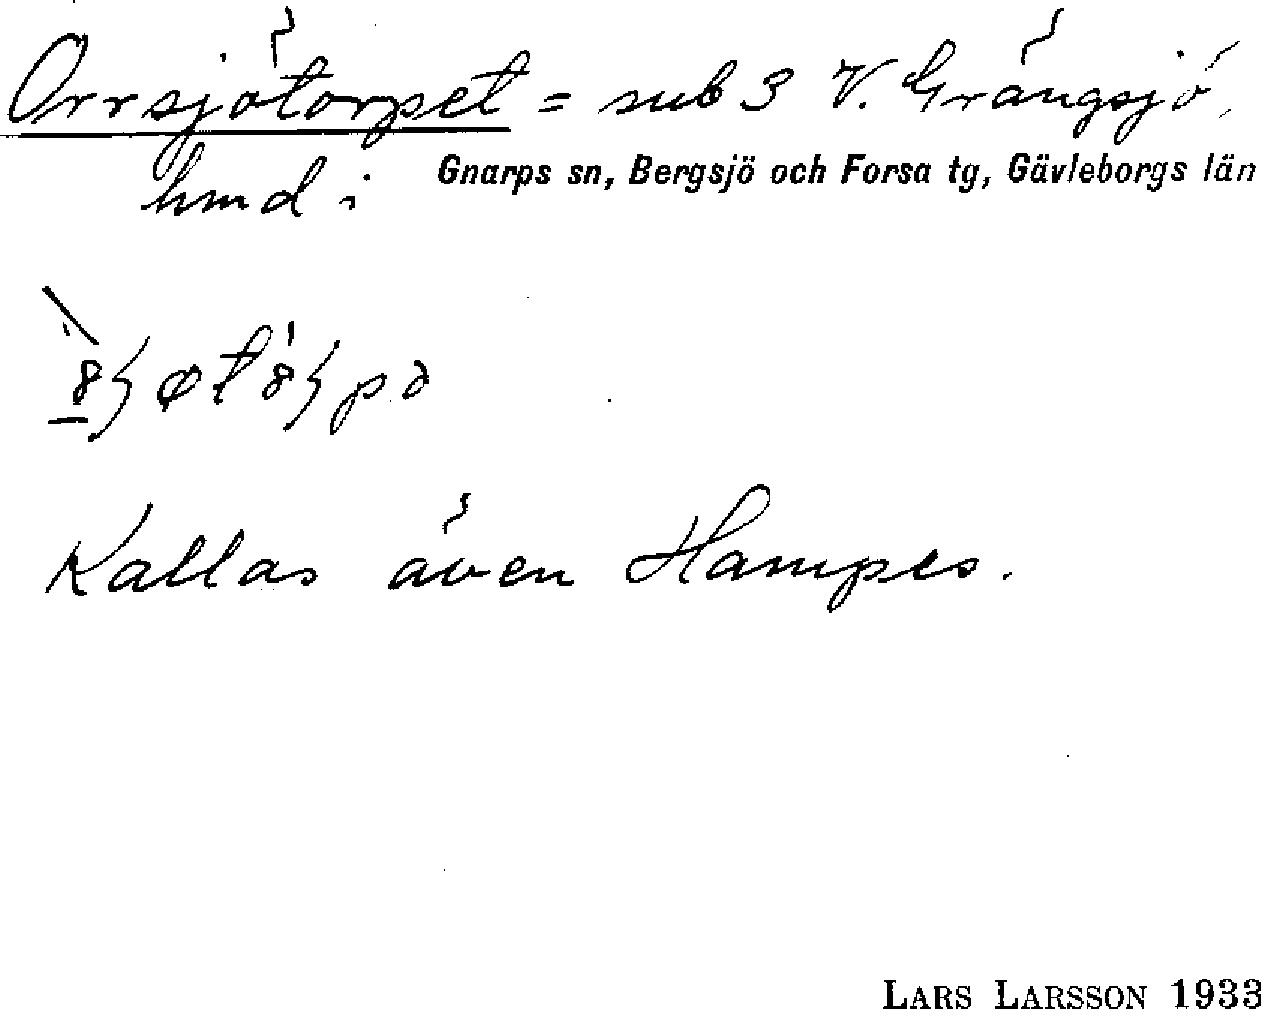 Orrsjötorpet = sub 3 V. Grängsjö,
hmd i Gnarps sn, Bergsjö och Forsa tg, Gävleborgs län
Kallas även Hampes.
LARS LARSSON 1933